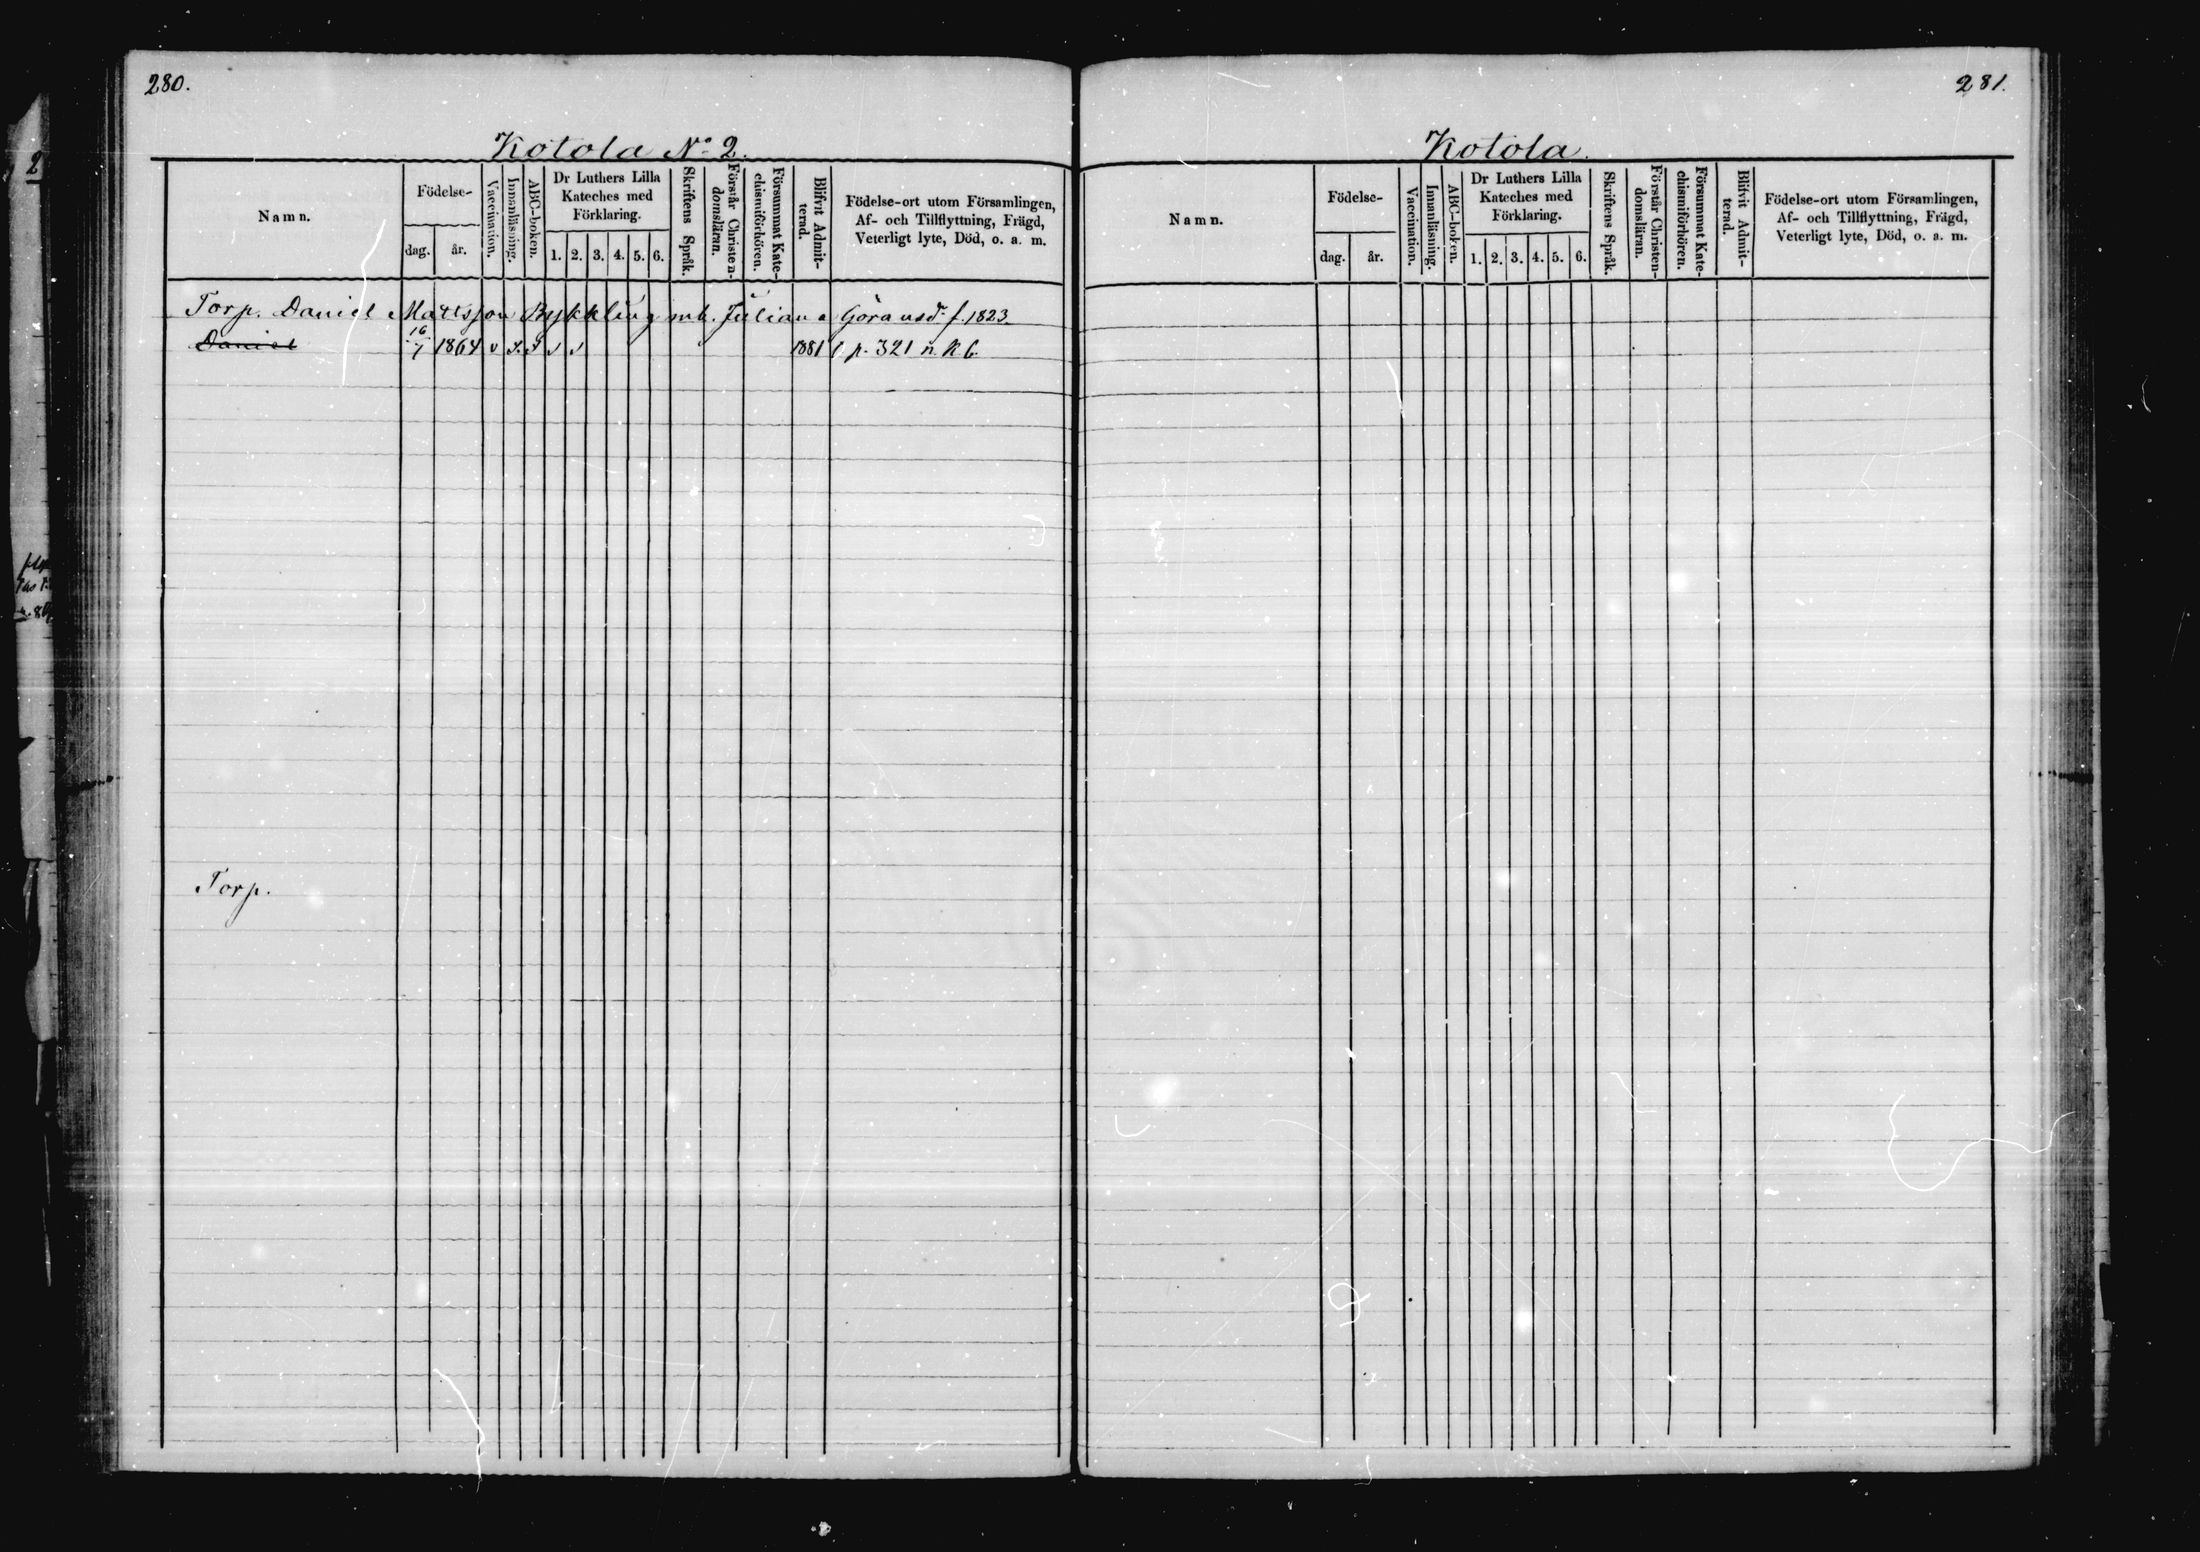 280.
Kotola No 2.
Namn.
Födelse-
dag. år.
Vaccination.
Innanläsning.
ABC-boken.
Dr Luthers Lilla
Kateches med
Förklaring.
1. 2. 3. 4. 5. 6.
Skriftens Språk.
Förstår Christen-
domsläran.
Försummat Kate-
chismiförhören.
Blifvit Admit-
terad.
Födelse-ort utom Församlingen,
Af- och Tillflyttning, Frägd,
Veterligt lyte, Död, o. a. m.
Torp. Daniel Mattsson Bykkling m b. Juliana Göransdr f. 1823.
Daniel 16/7 1864 v 1881 p. 321 n. K b.
Torp.
281.
Kotola.
Namn.
Födelse-
dag. år.
Vaccination.
Innanläsning.
ABC-boken.
Dr Luthers Lilla
Kateches med
Förklaring.
1. 2. 3. 4. 5. 6.
Skriftens Språk.
Förstår Christen-
domsläran.
Försummat Kate-
chismiförhören.
Blifvit Admit-
terad.
Födelse-ort utom Församlingen,
Af- och Tillflyttning, Frägd,
Veterligt lyte, Död, o. a. m.